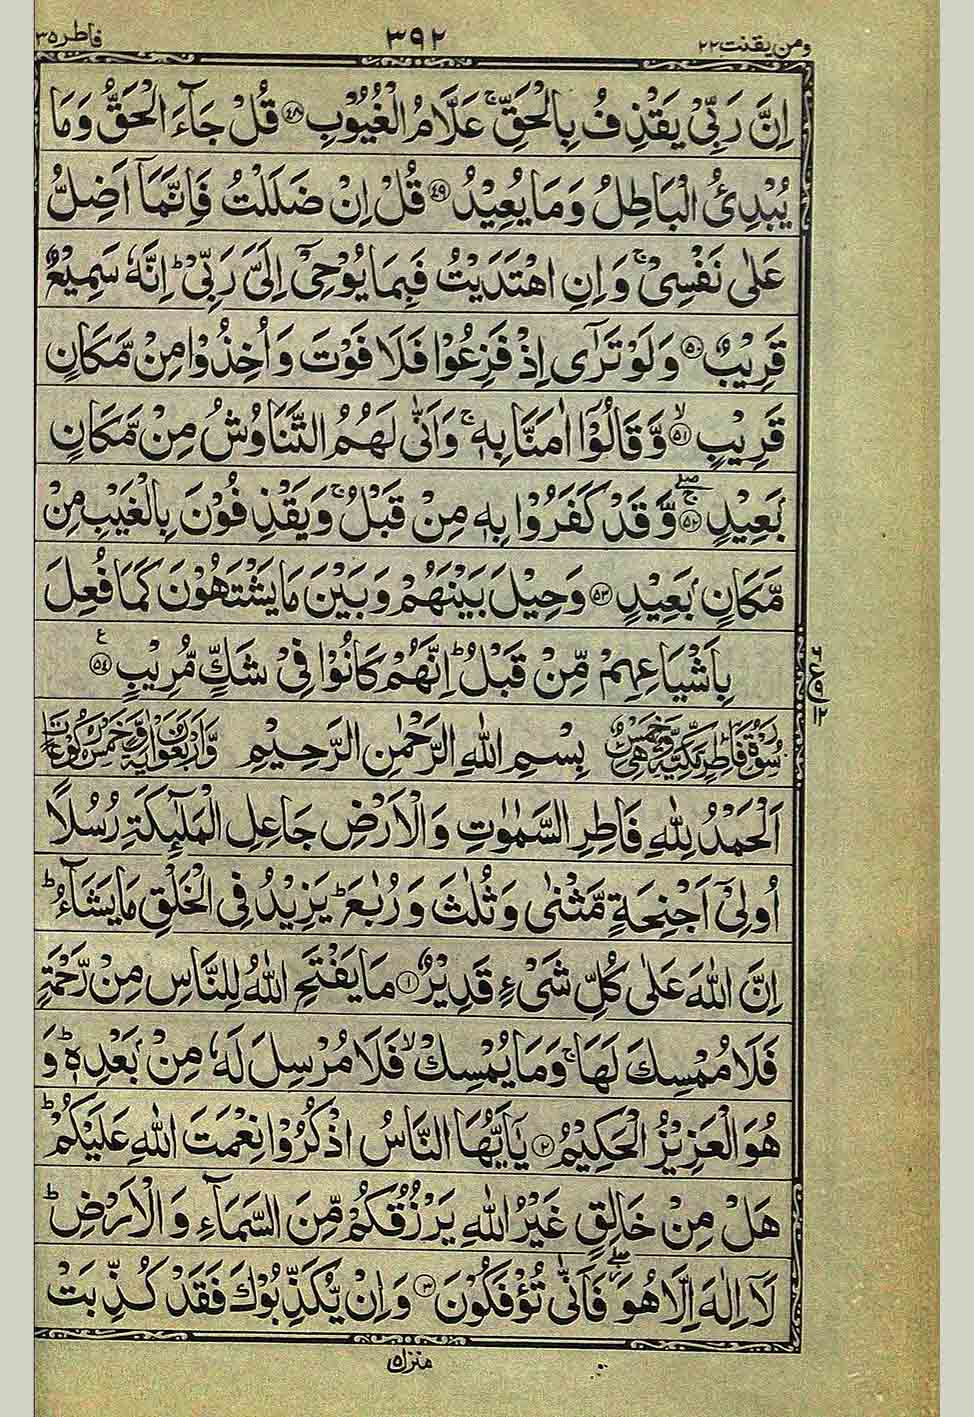 ومن يقنت ٢٢ ٣٩٢ فاطر ٣٥
اِنَّ رَبِّیْ یَقْذِفُ بِالْحَقِّ ۚ عَلَّامُ الْغُیُوْبِ ﴿٤٨﴾ قُلْ جَآءَ الْحَقُّ وَمَا
یُبْدِئُ الْبَاطِلُ وَمَا یُعِیْدُ ﴿٤٩﴾ قُلْ اِنْ ضَلَلْتُ فَاِنَّمَاۤ اَضِلُّ
عَلٰی نَفْسِیْ ۚ وَاِنِ اهْتَدَیْتُ فَبِمَا یُوْحِیْۤ اِلَیَّ رَبِّیْ ؕ اِنَّهٗ سَمِیْعٌ
قَرِیْبٌ ﴿٥٠﴾ وَلَوْ تَرٰۤی اِذْ فَزِعُوْا فَلَا فَوْتَ وَاُخِذُوْا مِنْ مَّكَانٍ
قَرِیْبٍ ﴿٥١﴾ ۙ وَّقَالُوْۤا اٰمَنَّا بِهٖ ۚ وَاَنّٰی لَهُمُ التَّنَاوُشُ مِنْ مَّكَانٍ
بَعِیْدٍ ﴿٥٢﴾ ۚۖ وَّقَدْ كَفَرُوْا بِهٖ مِنْ قَبْلُ ۚ وَیَقْذِفُوْنَ بِالْغَیْبِ مِنْ
مَّكَانٍۭ بَعِیْدٍ ﴿٥٣﴾ وَحِیْلَ بَیْنَهُمْ وَبَیْنَ مَا یَشْتَهُوْنَ كَمَا فُعِلَ
بِاَشْیَاعِهِمْ مِّنْ قَبْلُ ؕ اِنَّهُمْ كَانُوْا فِیْ شَكٍّ مُّرِیْبٍ ﴿٥٤﴾ ع
سُوْرَةُ فَاطِرٍ مَّكِّیَّةٌ وَّهِیَ خَمْسٌ بِسْمِ اللّٰهِ الرَّحْمٰنِ الرَّحِیْمِ وَّاَرْبَعُوْنَ اٰیَةً وَّخَمْسُ رُكُوْعَاتٍ
اَلْحَمْدُ لِلّٰهِ فَاطِرِ السَّمٰوٰتِ وَالْاَرْضِ جَاعِلِ الْمَلٰٓئِكَةِ رُسُلًا
اُولِیْۤ اَجْنِحَةٍ مَّثْنٰی وَثُلٰثَ وَرُبٰعَ ؕ یَزِیْدُ فِی الْخَلْقِ مَا یَشَآءُ ؕ
اِنَّ اللّٰهَ عَلٰی كُلِّ شَیْءٍ قَدِیْرٌ ﴿١﴾ مَا یَفْتَحِ اللّٰهُ لِلنَّاسِ مِنْ رَّحْمَةٍ
فَلَا مُمْسِكَ لَهَا ۚ وَمَا یُمْسِكْ ۙ فَلَا مُرْسِلَ لَهٗ مِنْۢ بَعْدِهٖ ؕ وَ
هُوَ الْعَزِیْزُ الْحَكِیْمُ ﴿٢﴾ یٰۤاَیُّهَا النَّاسُ اذْكُرُوْا نِعْمَتَ اللّٰهِ عَلَیْكُمْ ؕ
هَلْ مِنْ خَالِقٍ غَیْرُ اللّٰهِ یَرْزُقُكُمْ مِّنَ السَّمَآءِ وَالْاَرْضِ ؕ
لَاۤ اِلٰهَ اِلَّا هُوَ ۖ فَاَنّٰی تُؤْفَكُوْنَ ﴿٣﴾ وَاِنْ یُّكَذِّبُوْكَ فَقَدْ كُذِّبَتْ
منزل ٥